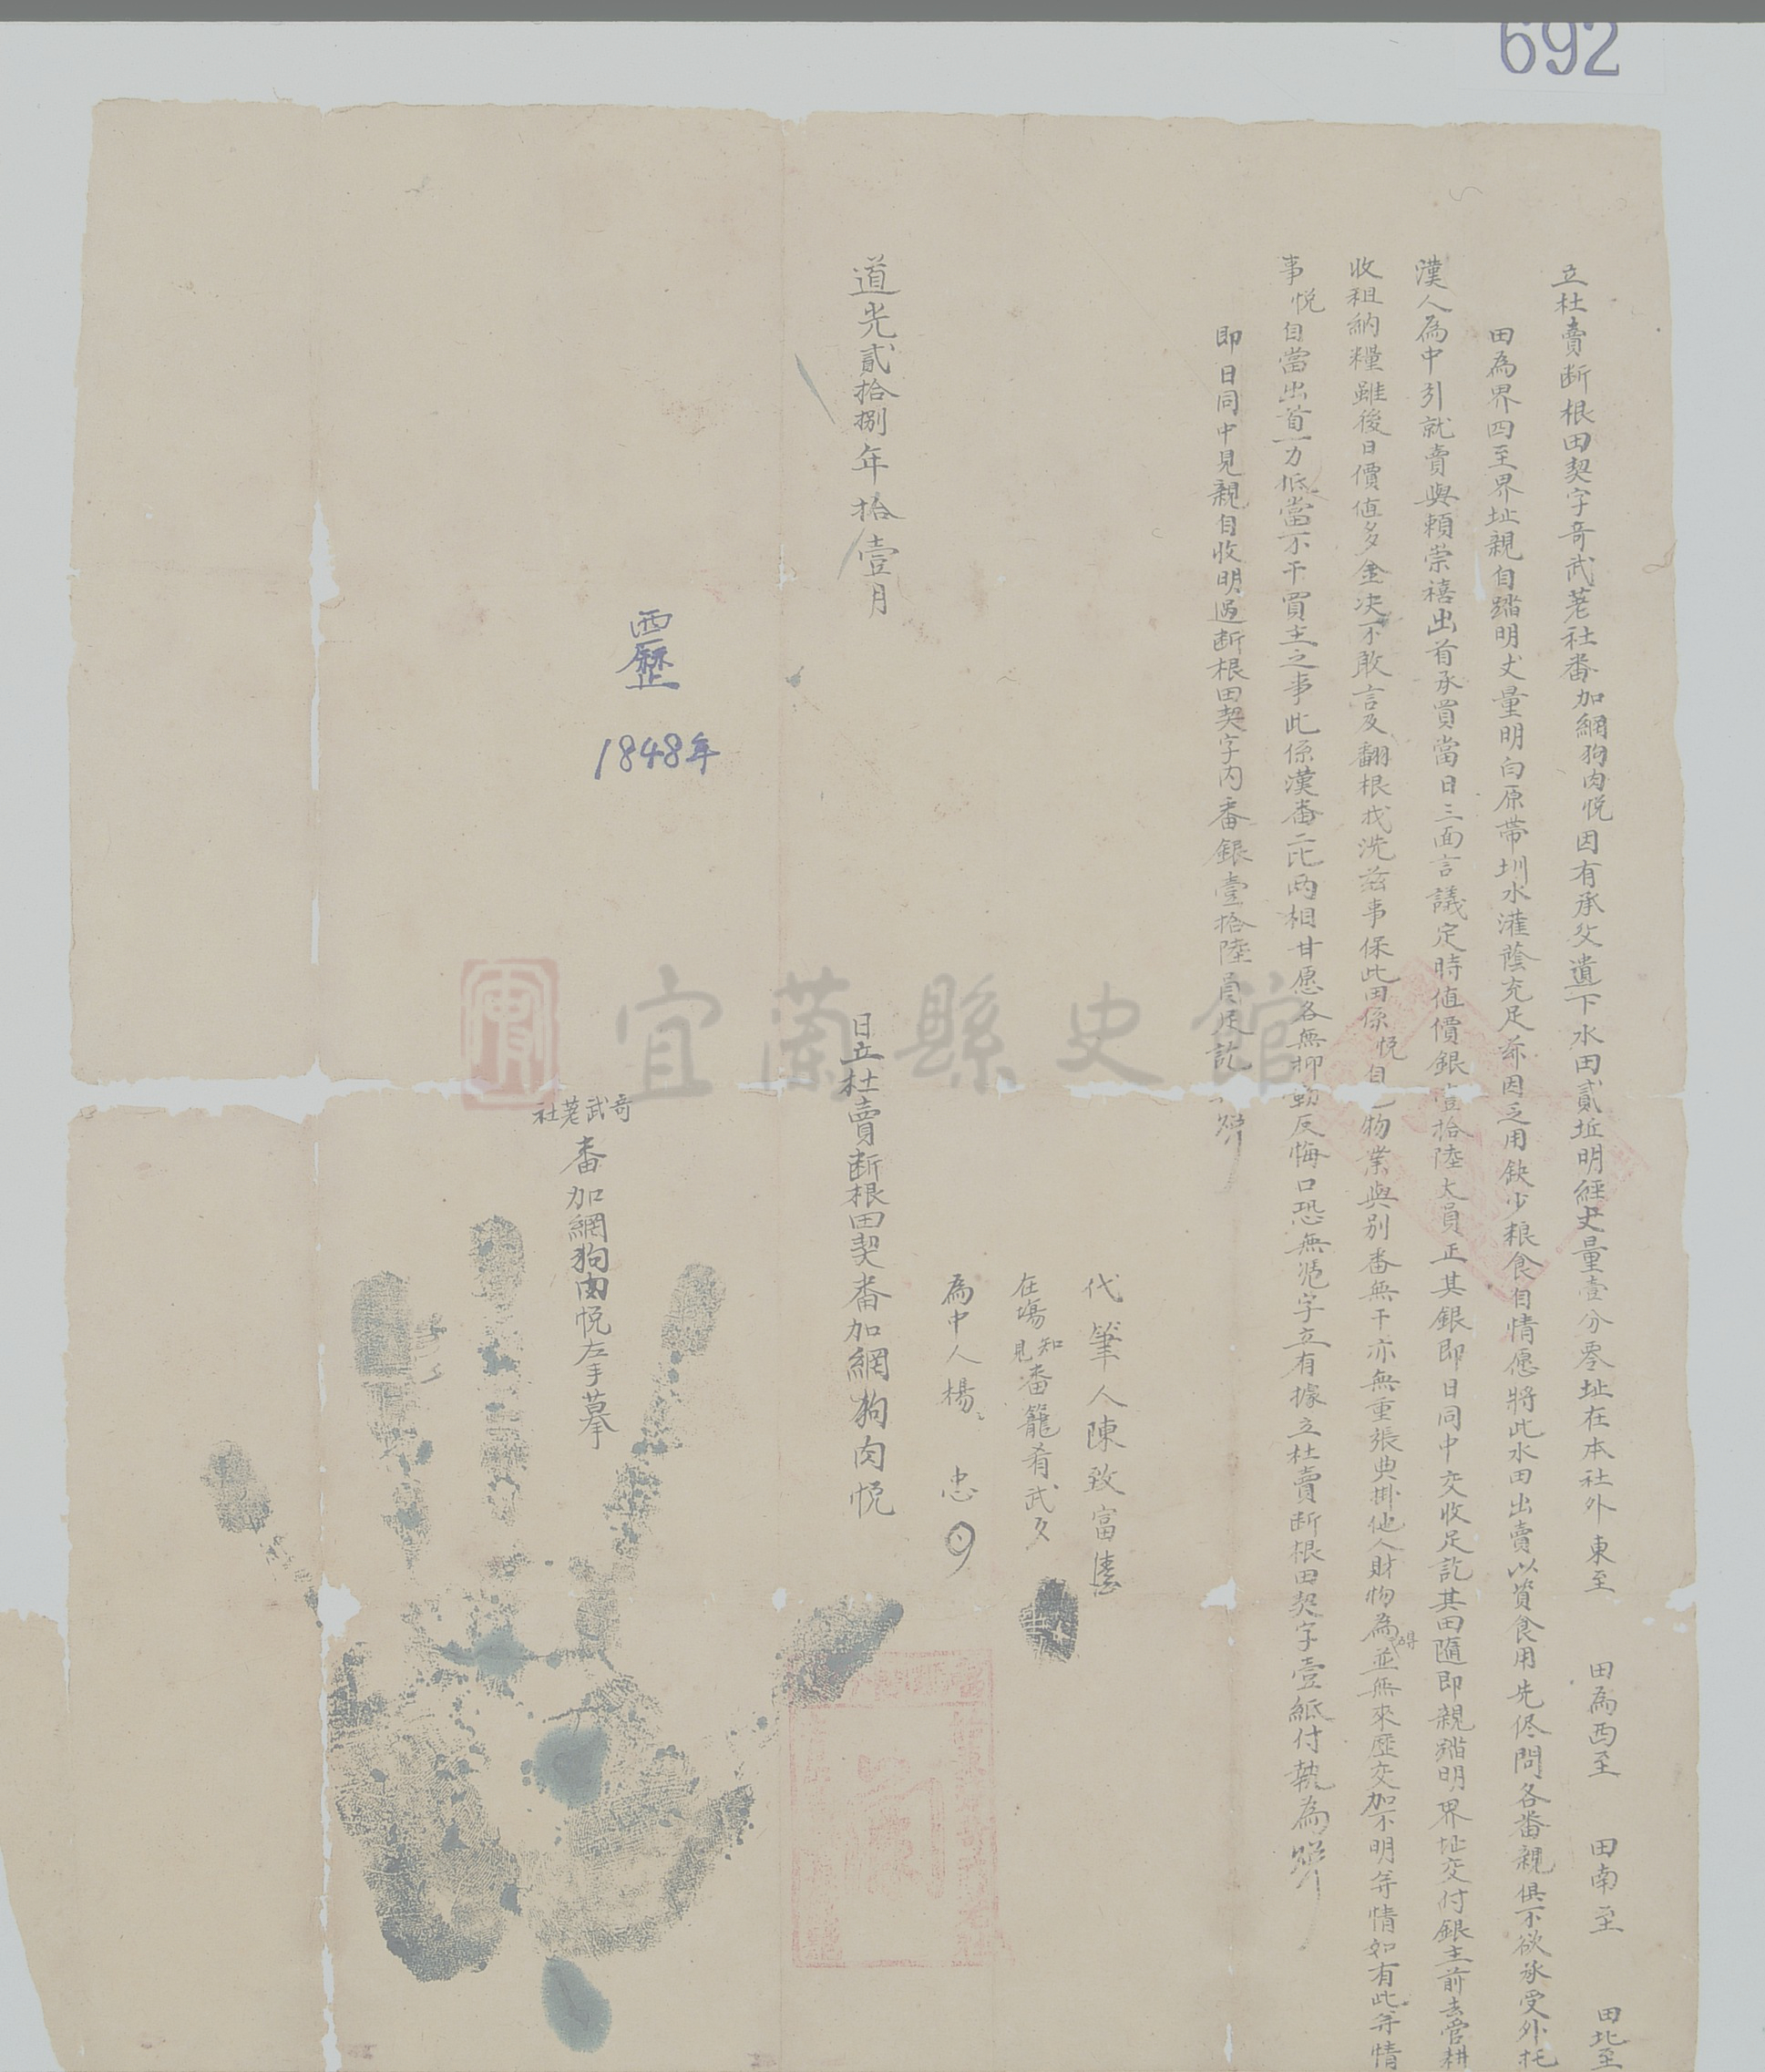 692
立杜賣断根田契字奇武荖社番加網狗肉悦因有承父遺下水田貳坵明經丈量壹分零址在本社外東至 田為西至 田南至 田北至
田為界四至界址親自踏明丈量明白原帶圳水灌蔭充足茶因乏用缺少粮食自情愿將此水田出賣以資食用先侭問各番親俱不欲承受外托
漢人為中引就賣與賴崇禧出首承買當日三面言議定時值價銀壹拾陸大員正其銀即日同中交收足訖其田隨即親踏明界址交付銀主前去管耕
收租納糧雖後日價值多金决不敢言及翻根找洗滋事保此田係悦自己物業與別番無干亦無重張典掛他人財物為碍並無來歷交加不明等情如有此等情
事悦自當出首一力抵當不干買主之事此係漢番二比两相甘愿各無抑勒反悔口恐無憑字立有據立杜賣断根田契字壹紙付執為炤
即日同中見親自收明過断根田契字内番銀壹拾陸員足訖炤
代筆人陳致富
在塲知見番籠肴武夕
為中人楊忠
道光貳拾捌年拾壹月 日立杜賣断根田契番加網狗肉悦
西歷
1848年
奇武荖社
番加網狗肉悦左手摹
宜蘭縣史館